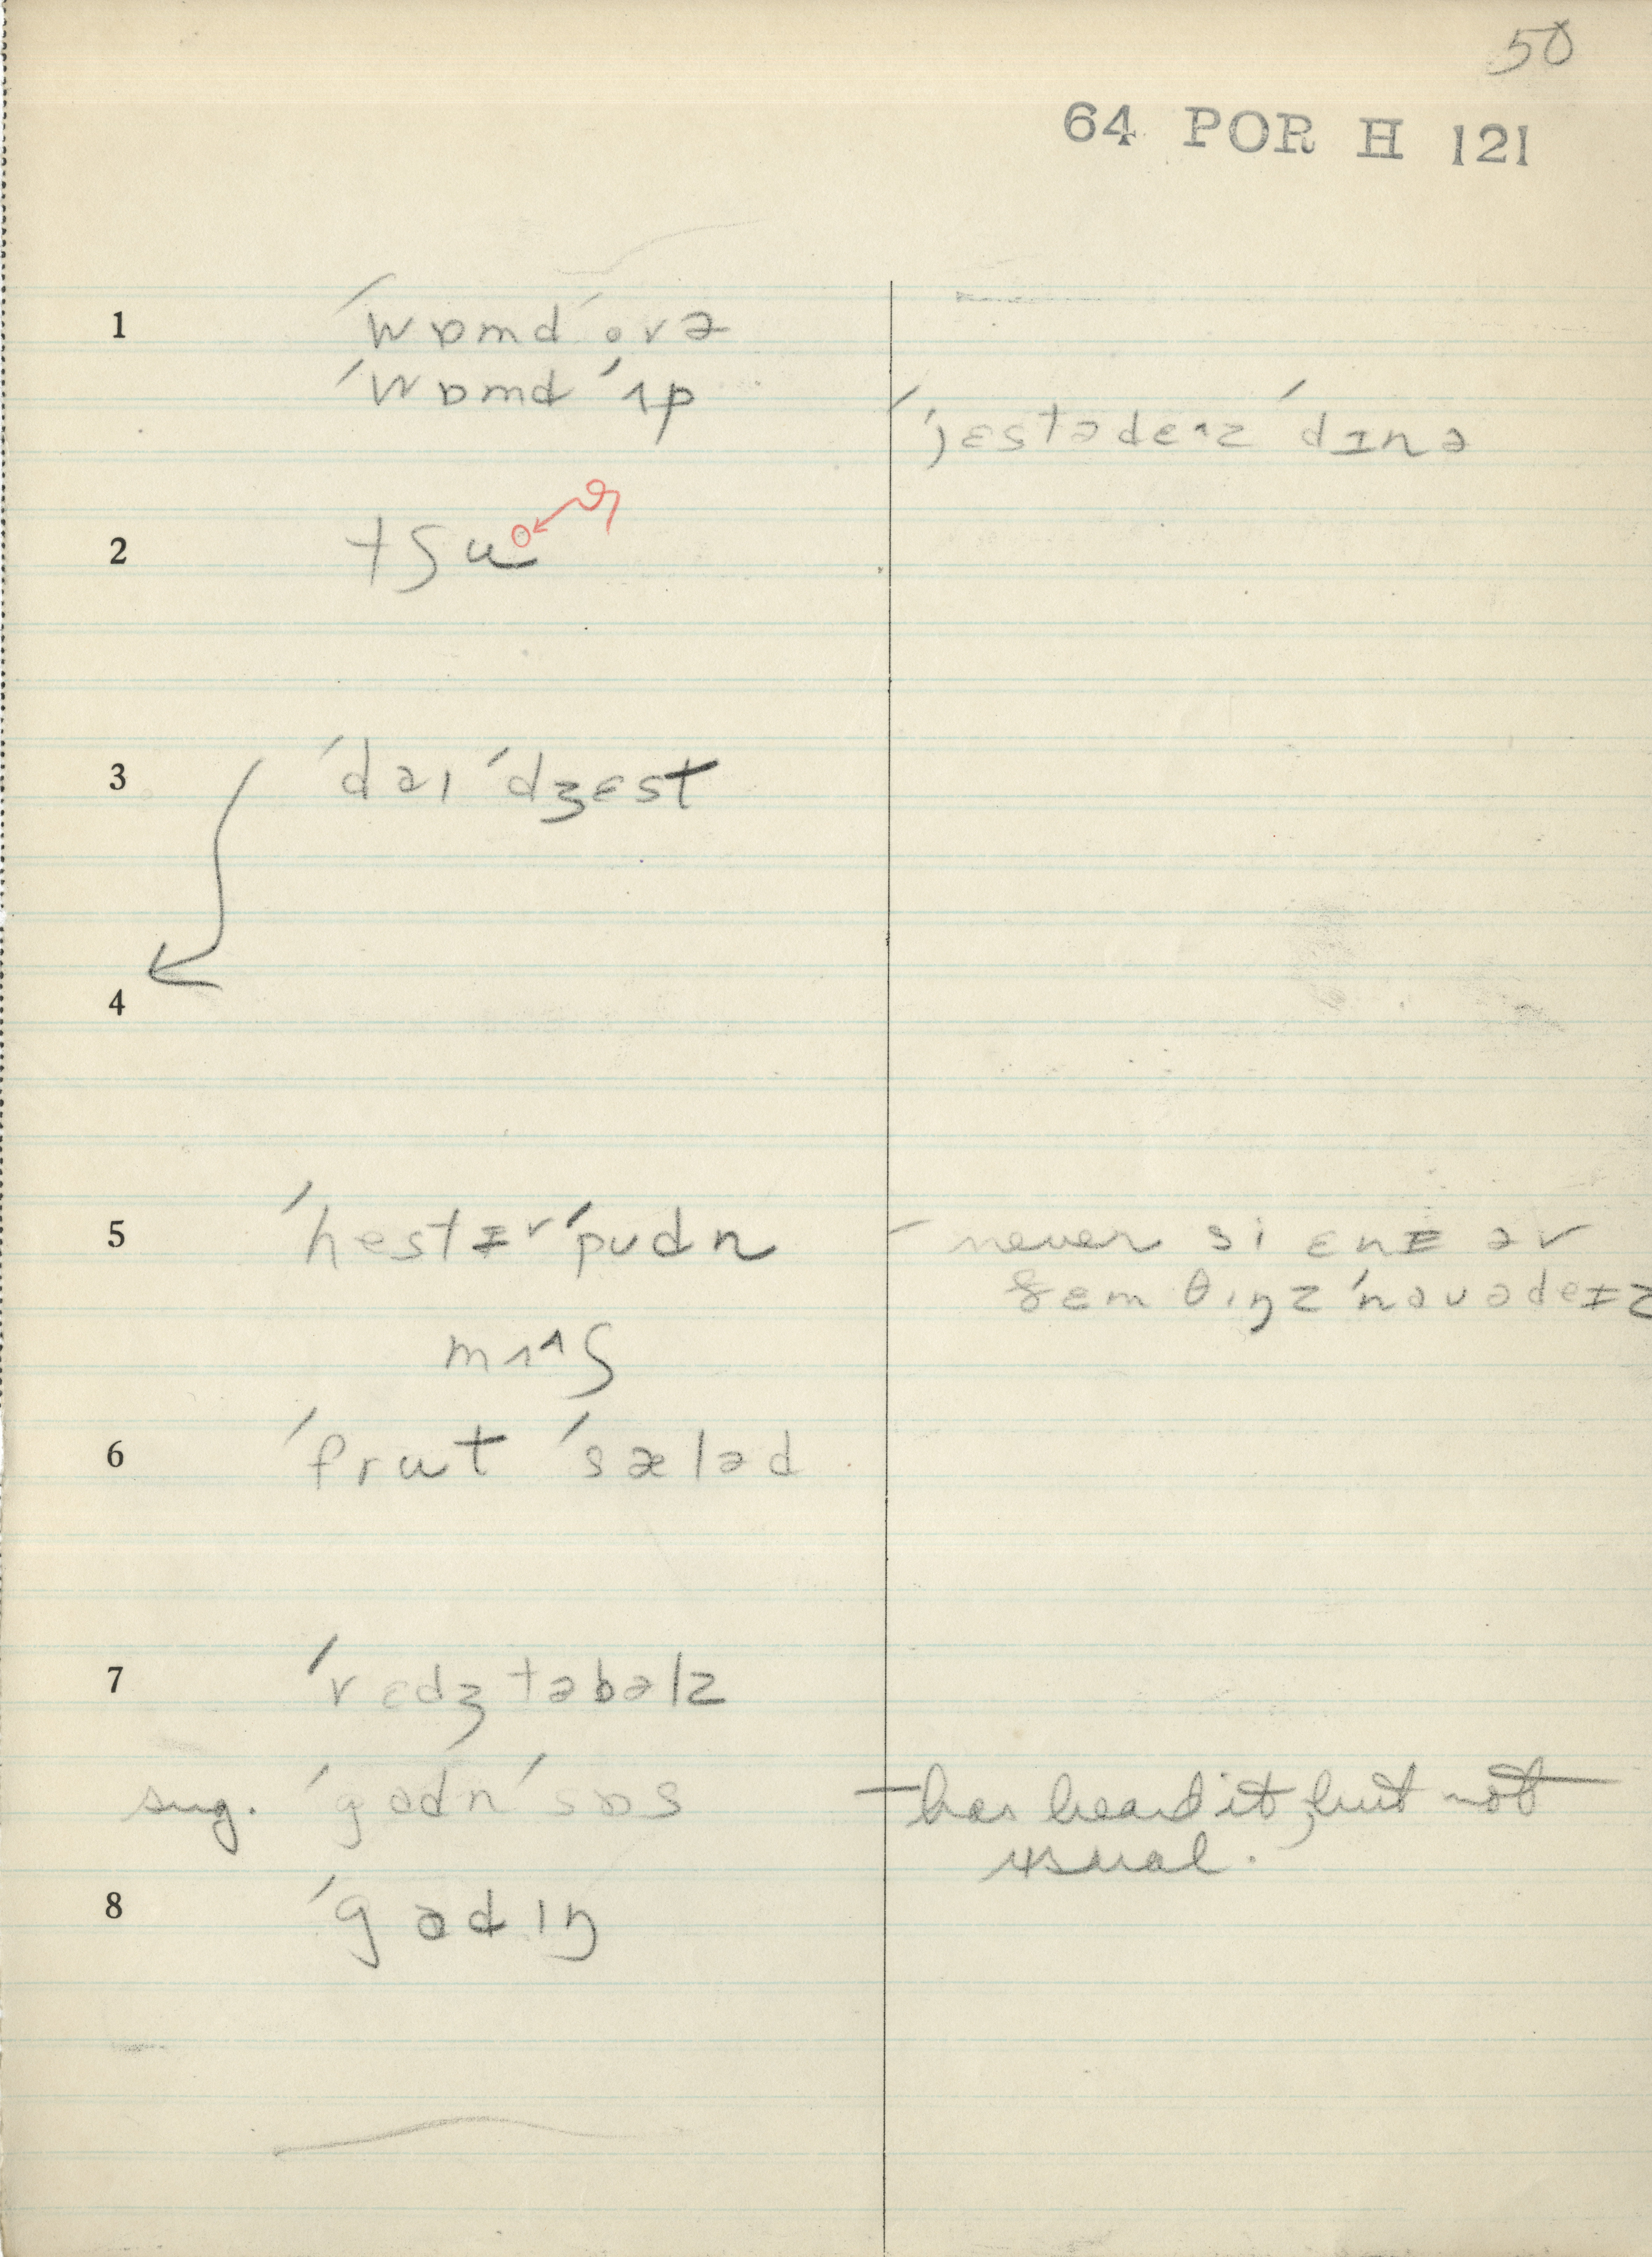 50
64 POR H 121
1 ˈwɒmd ˈovə
ˈwɒmd ˈʌp
ˈjɛstədeɪz ˈdɪnə
2 tʃu
3 ˈdaɪˈdʒɛst
4
5 ˈhestɪrˈpudn - never si ɛnɪ əv
ðɛm θɪŋz ˈnaʊədeɪz
mʌʃ
6 ˈfrut ˈsæləd
7 ˈvɛdʒtəbəlz
sug. ˈgɑdn ˈsɒs - has heard it, but not
usual.
8 ˈgɑdɪŋ